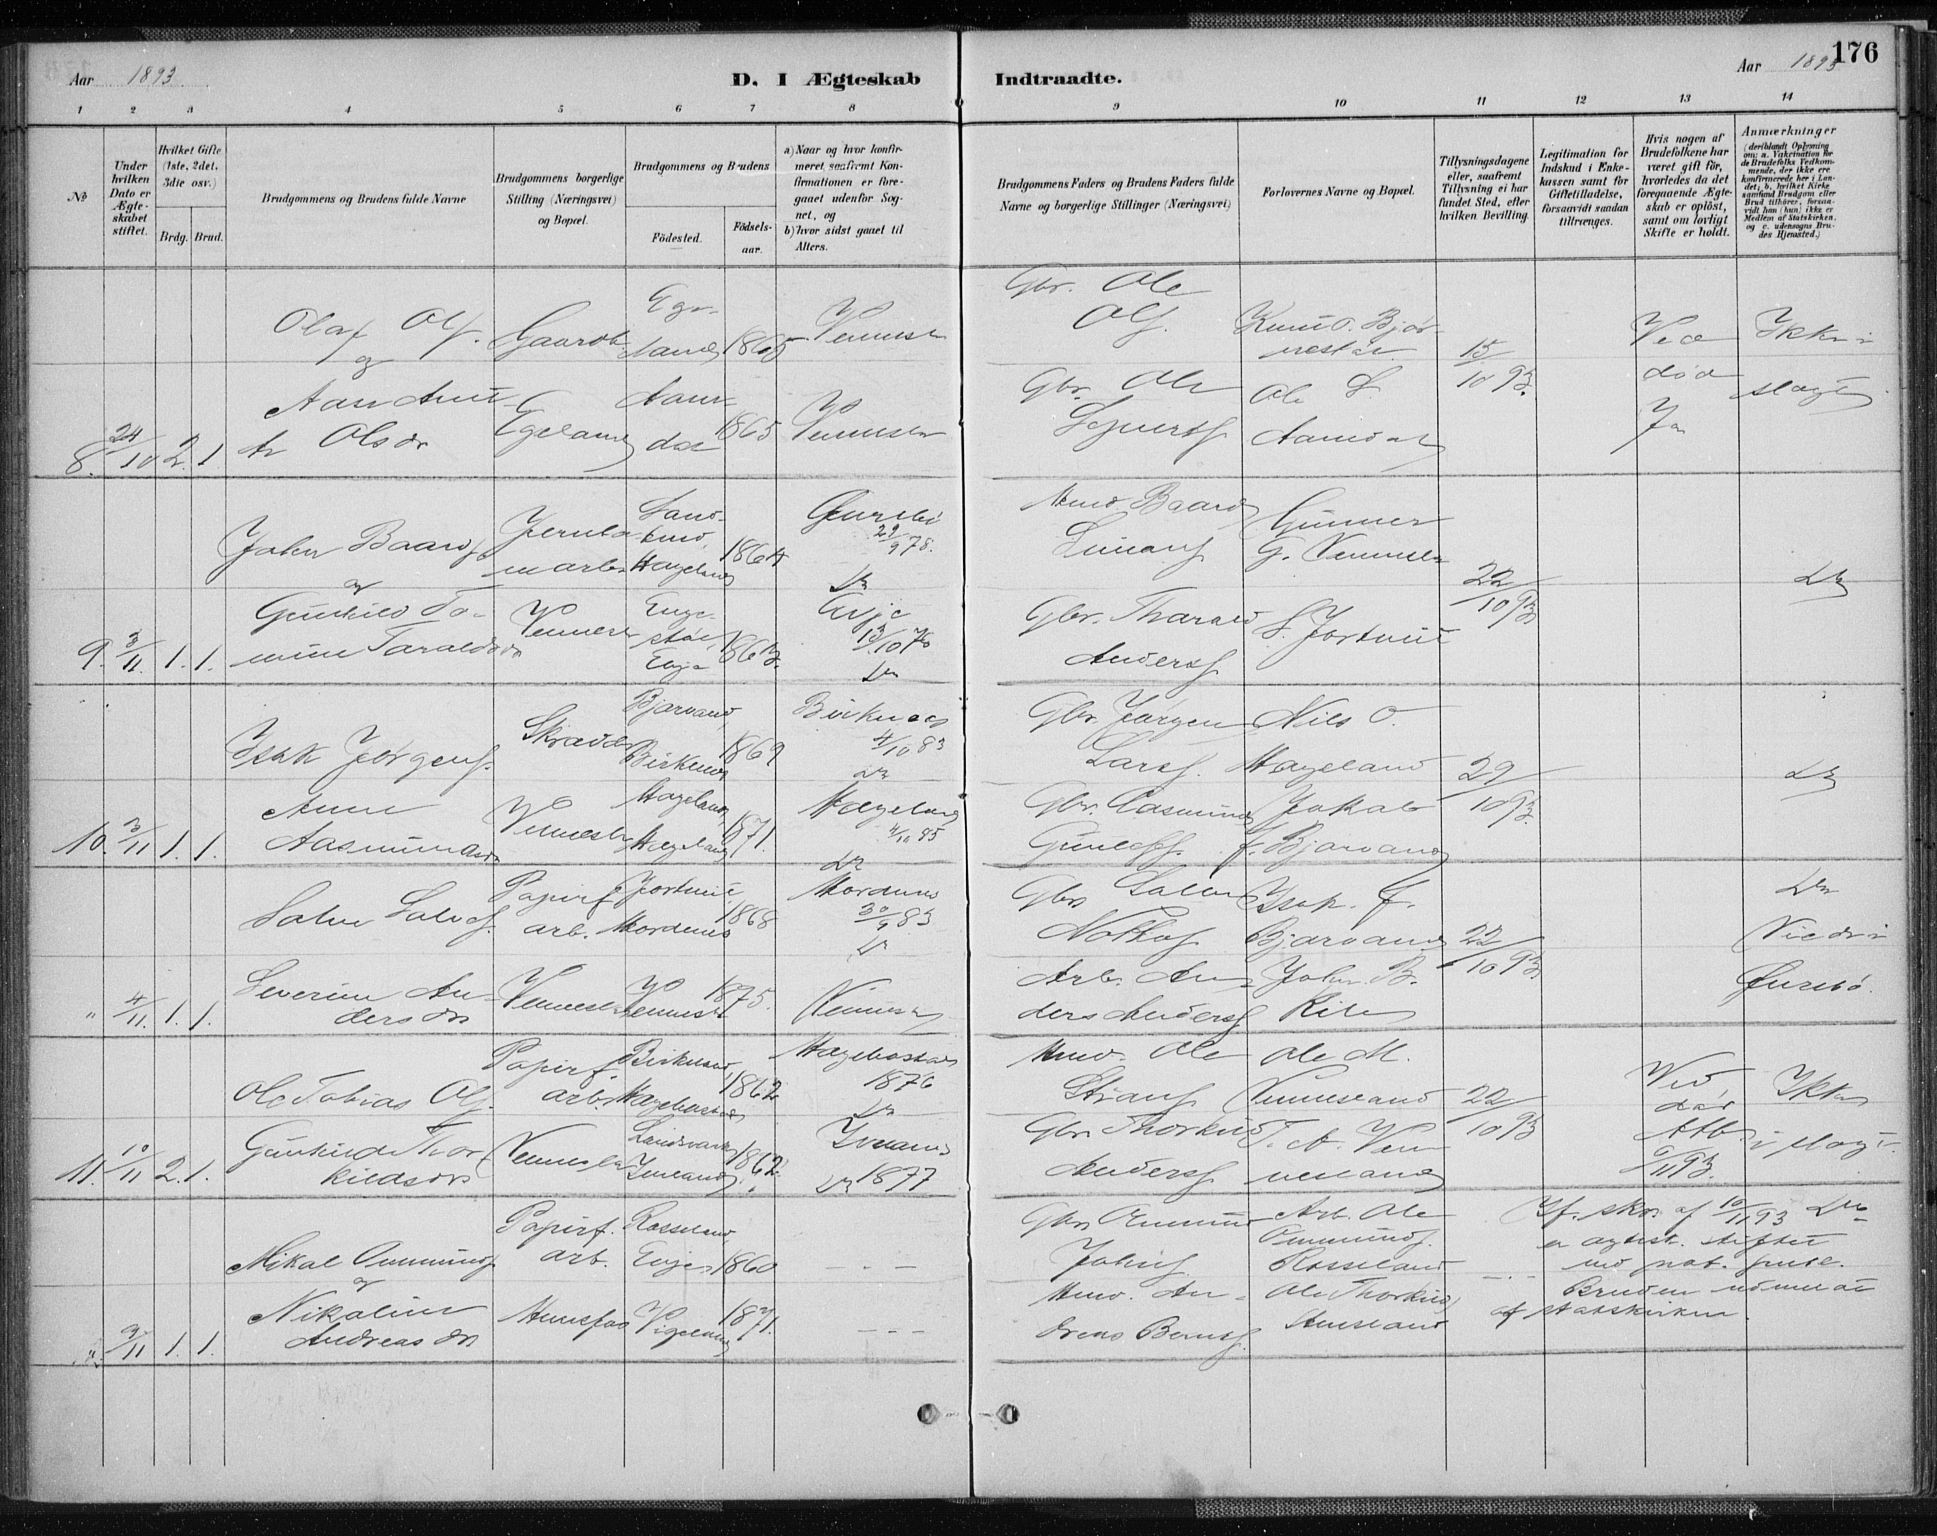 176
Aar 1893
D. I Ægteskab Indtraadte.
Aar 1893
1 2 3 4 5 6 7 8 9 10 11 12 13 14
No
Under hvilken Dato er Ægteskabet stiftet.
Hvilket Gifte (1ste, 2det, 3die osv.)
Brdg. Brud.
Brudgommens og Brudens fulde Navne
Brudgommens borgerlige Stilling (Næringsvei) og Bopæl.
Brudgommens og Brudens
Fødested.
Fødselsaar.
a) Naar og hvor konfirmeret, saafremt Konfirmationen er foregaaet udenfor Sognet, og
b) hvor sidst gaaet til Alters.
Brudgommens Faders og Brudens Faders fulde Navne og borgerlige Stillinger (Næringsvei)
Forlovernes Navne og Bopæl.
Tillysningsdagene eller, saafremt Tillysning ei har fundet Sted, efter hvilken Bevilling.
Legitimation for Indskud i Enkekassen samt for Giftetilladelse, forsaavidt saadan tiltrænges.
Hvis nogen af Brudefolkene har været gift før, hvorledes da det foregaaende Ægteskab er opløst, samt om lovligt Skifte er holdt.
Anmærkninger (deriblandt Oplysning om: a. Vakcination for de Brudefolks Vedkommende, der ikke ere konfirmerede her i Landet; b. hvilket Kirkesamfund Brudgom eller Brud tilhører, forsaavidt han (hun) ikke er Medlem af Statskirken, og c. udensogns Brudes Hjemsted.)
8. 24/10 2. 1.
Olaf Ols.
og
Olsdr
Gaardb.
Egeland
Egeland 1865
Aamdal 1865
Vennesla
Vennesla
Gbr. Ole
Ols.
Gbr. Ole
Knut O. Bjør
Ole S.
Aamdal
15/10 93.
Ved
død
Ja
Ikke i
slægt
9. 3/11. 1. 1.
John Baards
og
Gunhild To-
mine Taraldsdr
Vennesla
Hægeland 1864
1863.
Øvrebø
29/9 78.
Do
Evje
Do
Hmd. Baard
Gbr. Tharald
Anders
Gunner
G. Vennesla
S. Jortveit
22/10 93
Do
10. 3/11 1. 1.
Isak Jørgens.
Anne
Aasmundsdr
Skrædder
Vennesla
Bjorvand
Birkenes 1869
Hægeland
Hægeland 1871.
Birkenes
4/10 83
Do
Hægeland
4/10 85
Do
Gbr. Jørgen
Lars.
Gbr. Aasmund
Gunlefs.
Nils O.
Hægeland
Jakob
J. Bjorvand
29/10 93.
Do
" 4/11. 1. 1.
Salve Salves.
Severine An-
dersdr
Papirf.
arb.
Vennesla
Jortveit
Hordenes 1868
Vennesla 1875.
Hordenes
30/9 83
Do
Vennesla
Gbr
Arb. An-
ders Anders
Isak J.
Bjorvand
John B.
22/10 93
Do
Viede i
Øvrebø.
11. 10/11 2. 1.
Ole Tobias Ols.
Gunhilde Thor
kildsdr
Papirf.
arb.
Vennesla
Birkeland
Hægebostad 1862
Landsverk
Iveland 1862.
Hægebostad
1876
Do
Iveland
Do 1877
Hmd. Ole
Gbr Thorkild
Anders
Ole M.
Venneland
T. A. Ven
neland
22/10 93
Ved
død
Ikke
i slægt
" 9/11 1. 1.
Mikal Ommunds
og
Nikoline
Andreasdr
Papirf.
arb.
Hunsfos
Rosseland
Evje 1860
Vigeland 1871.
- - -
- - -
Gbr Ommund
Hmd. An-
dreas Bernts.
Arb. Ole
Ommunds.
Rosseland
Ole Thorkild
If. skr. af 10/11 93 Do
er ægtesk. stiftet
ved not.
Bruden udmeldt
af statskirken.